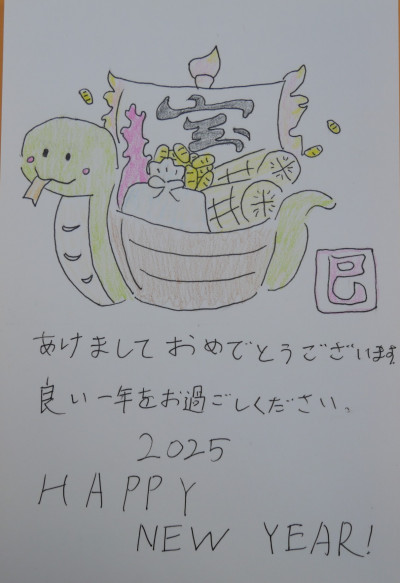 宝
巳
あけましておめでとうございます
良い一年をお過ごしください。
2025
HAPPY
NEW YEAR!